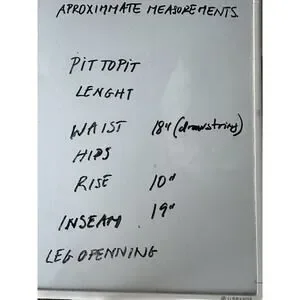 APROXIMMATE MEASUREMENTS
PIT TO PIT
LENGHT
WAIST 18" (drawstring)
HIPS
RISE 10"
INSEAM 19"
LEG OPENNING